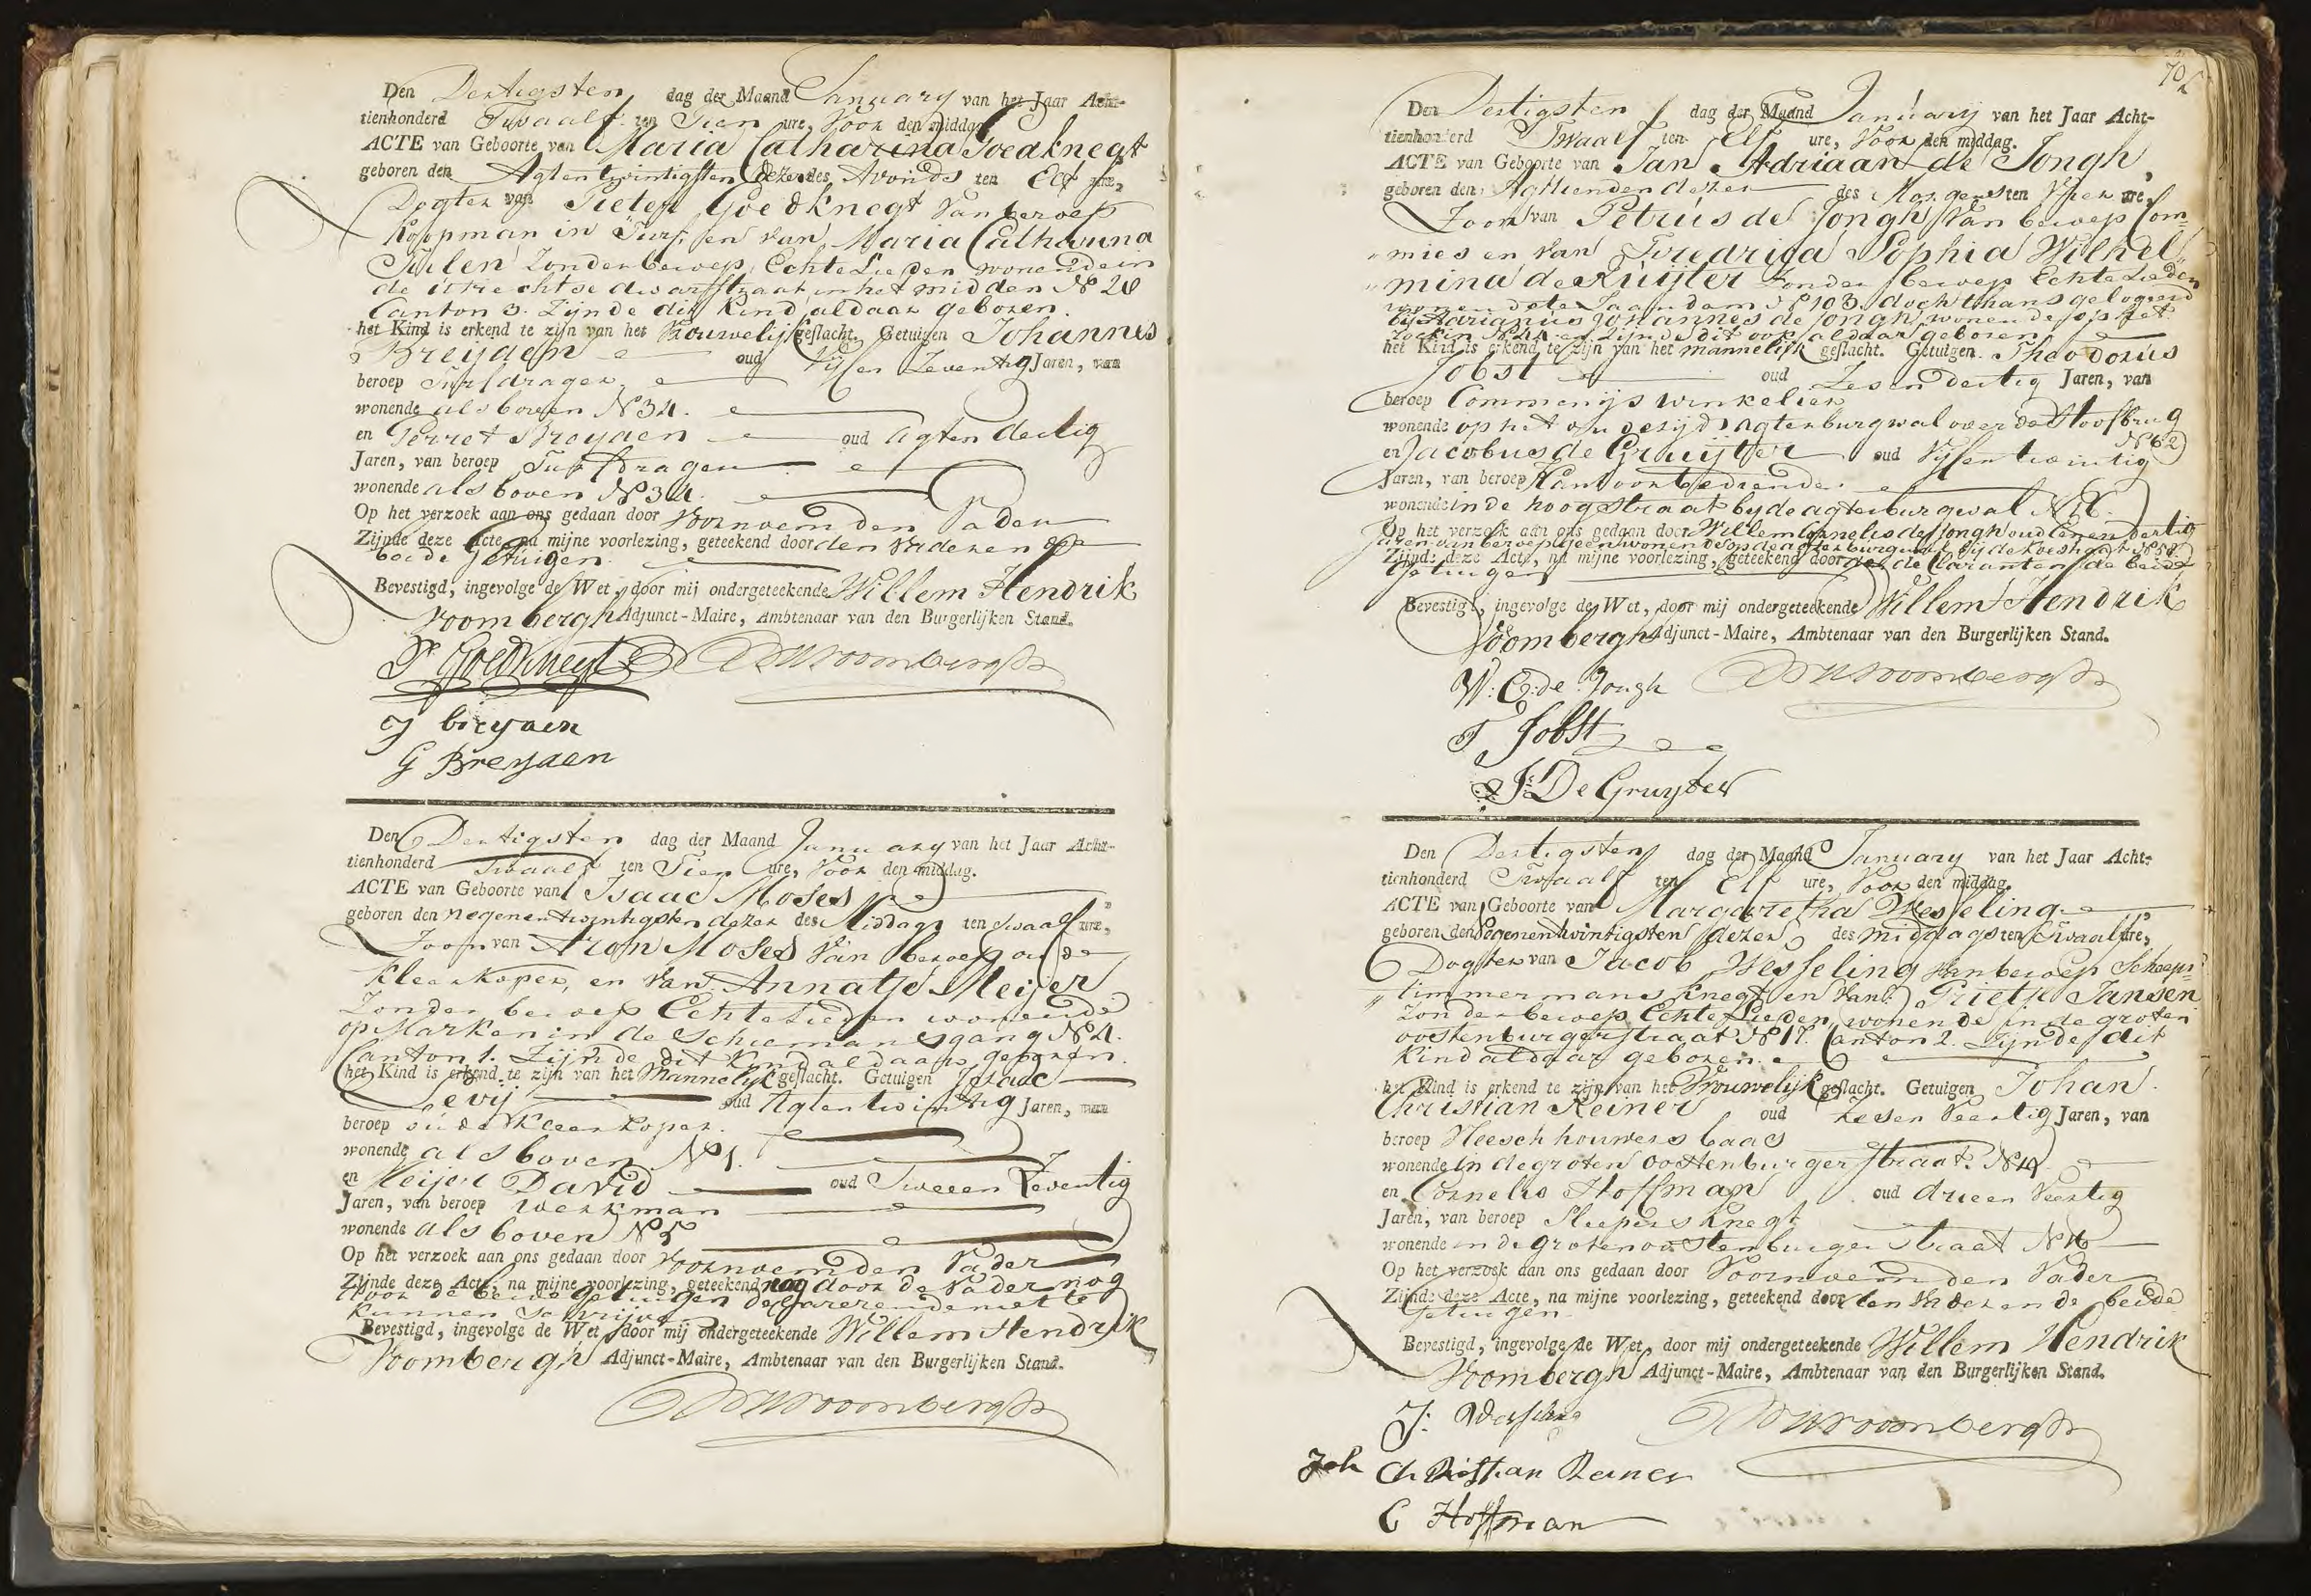 Den Dertigsten dag der Maand January van het Jaar Acht-
tienhonderd Twaalf ten Tien ure, Voor den middag
ACTE van Geboorte van Maria Catharina Goedknegt
geboren den Agtentwintigsten dezer des Avonds ten Elf ure,
Dogter van Pieter Goedknegt Van beroep
Koopman in Turf, en van Maria Catharina
zonder beroep, Echte Lieden wonende in
de Utrechtse dwarsstraat in het midden No 28
Canton 3. Zijnde dit Kind aldaar geboren.
het Kind is erkend te zijn van het Vrouwelijk geslacht. Getuigen Johannes
Breyden oud Vijf en Zeventig Jaren, van
beroep Turfdrager
wonende als boven No 34.
en Gerret Breyden oud Agten dertig
Jaren, van beroep Turfdrager
wonende als boven No 34.
Op het verzoek aan ons gedaan door Voornoemden Vader
Zijnde deze Acte, na mijne voorlezing, geteekend door den Vader en de
beide Getuigen.
Bevestigd, ingevolge de Wet, door mij ondergeteekende Willem Hendrik
Voombergh Adjunct-Maire, Ambtenaar van den Burgerlijken Stand.
P Goedknegt WHVoombergh
J breyden
G Breyden
Den Dertigsten dag der Maand January van het Jaar Acht-
tienhonderd Twaalf ten Tien ure, Voor den middag.
ACTE van Geboorte van Isaac Moses
geboren den negenentwintigsten dezer des Middags ten twaalf ure,
Zoon van Aron Moses Van beroep oude
Kleerkoper, en Van Annatje Meijer
Zonder beroep Echte Lieden wonende
op Marken in de Schiemansgang No 4.
Canton 1. Zijnde dit Kind aldaar geboren.
het Kind is erkend te zijn van het Mannelijk geslacht. Getuigen Isaac
Levij oud Agtentwintig Jaren, van
beroep oude Kleerkoper.
wonende als boven No 1.
en Meijer David oud Tweeen Zeventig
Jaren, van beroep Werkman
wonende als boven No 5
Op het verzoek aan ons gedaan door Voornoemden Vader
Zijnde deze Acte, na mijne voorlezing, geteekend nog door de Vader nog
door de beide getuigen declarerende niet te
kunnen Schrijve
Bevestigd, ingevolge de Wet, door mij ondergeteekende Willem Hendrik
Voombergh Adjunct-Maire, Ambtenaar van den Burgerlijken Stand.
WHVoombergh
70
Den Dertigsten dag der Maand January van het Jaar Acht-
tienhonderd Twaalf ten Elf ure, Voor den middag.
ACTE van Geboorte van Jan Adriaan de Jongh,
geboren den Agttienden dezer des Morgens ten Vier ure,
Zoon van Petrus de Jongh Van beroep Com-
mies en van Fredriga Sophia Wilhel
mina de Kuijter Zonder beroep Echte Lieden
wonende te Zaandam No 103. doch thans gelogeerd
bij Adrianus Johannes de Jongh wonende op het
en Zijnde dit aldaar geboren
het Kind is erkend te zijn van het mannelijk geslacht. Getuigen Theodorus
Jobst oud Zesendertig Jaren, van
beroep Commenijswinkelier
wonende op het Agterburgwal over de Hoofbrug
No 62
en Jacobus de Gruijter oud Vijfentwintig
Jaren, van beroep Kantoorbediende.
wonende in de hoogstraat by de agterburgwal
Op het verzoek aan ons gedaan door Willem Cornelis de Jongh oud Eenen dertig
Jaren van beroep geen wonende op de agterburgwal bij de
Zijnde deze Acte, na mijne voorlezing, geteekend door de Claranten de beide
Getuigen
Bevestigd, ingevolge de Wet, door mij ondergeteekende Willem Hendrik
Voombergh Adjunct-Maire, Ambtenaar van den Burgerlijken Stand.
W: C: de Jongh WHVoombergh
T Jobst
J: De Gruyter
Den Dertigsten dag der Maand January van het Jaar Acht-
tienhonderd Twaalf ten Elf ure, Voor den middag.
ACTE van Geboorte van Margaretha Wesseling
geboren den Negenentwintigsten dezer des middags ten Twaalf ure,
Dogter van Jacob Wesseling Van beroep Scheeps
timmermans knegt en van Grietje Jansen
Zonder beroep Echte Lieden, wonende in de groten
oostenburgerstraat No 17. Canton 2. Zijnde dit
Kind aldaar geboren.
het Kind is erkend te zijn van het Vrouwelijk geslacht. Getuigen Johan
Christian Reiner oud Zesen Veertig Jaren, van
beroep Vleeschhouwers baas
wonende in de groten Oostenburgerstraat.
en Cornelis Hoffman oud drieen Veertig
Jaren, van beroep Sleepersknegt
wonende in de groten oostenburgerstraat No 16
Op het verzoek aan ons gedaan door Voornoemden Vader
Zijnde deze Acte, na mijne voorlezing, geteekend door den Vader en de beide
Getuigen.
Bevestigd, ingevolge de Wet, door mij ondergeteekende Willem Hendrik
Voombergh Adjunct-Maire, Ambtenaar van den Burgerlijken Stand.
J: Wesseling WHVoombergh
Joh Christian Reiner
C Hoffman